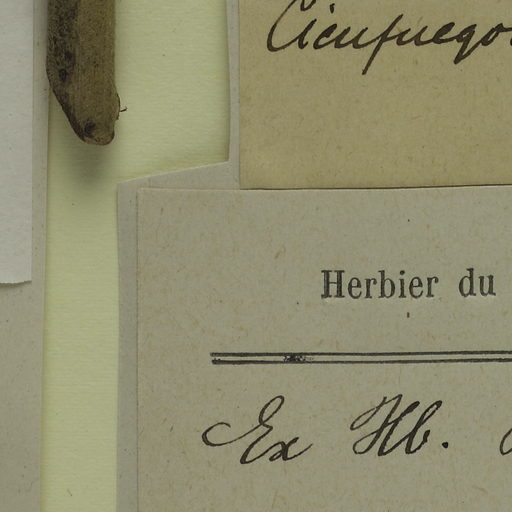 Cicufuegos
Herbier du
Ex Hb.